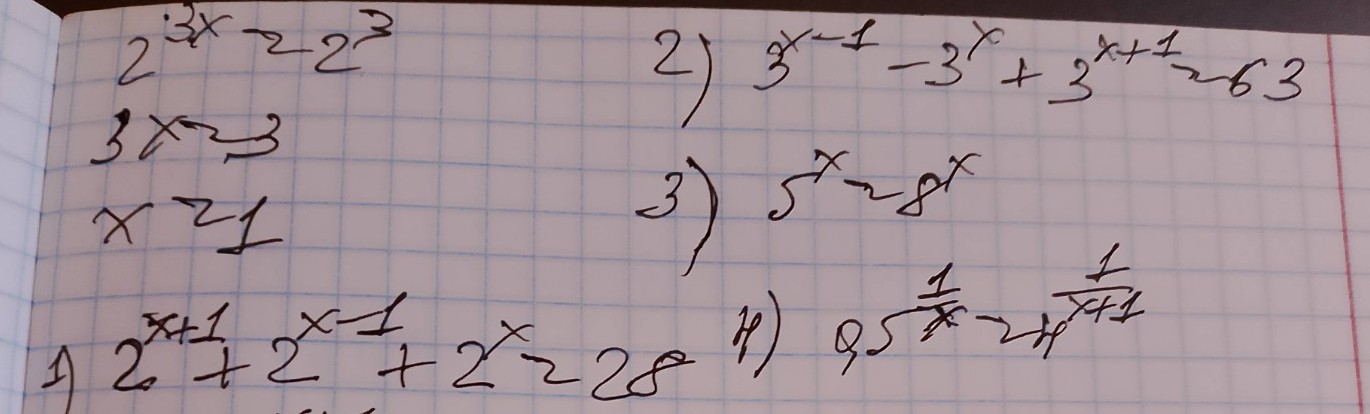 2^{3x} = 2^3
3x = 3
x = 1
1) 2^{x+1} + 2^{x-1} + 2^x = 28
2) 3^{x-1} - 3^x + 3^{x+1} = 63
3) 5^x = 8^x
4) 0,5^{\frac{1}{x}} = 4^{\frac{1}{x+1}}